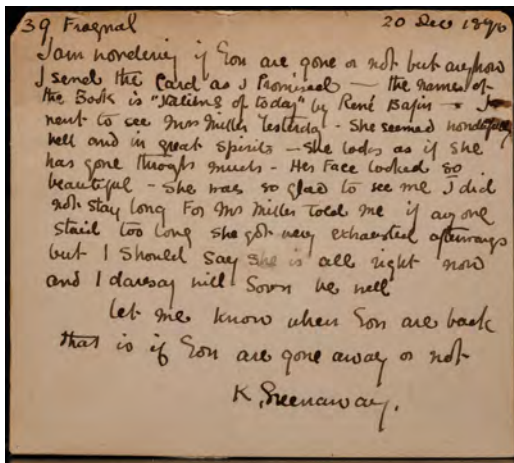 39 Frognal 20 Dec 1896
I am wondering if you are gone or not but anyhow
I send the Card as I Promised — the name of
the Book is "Italiens of today" by René Bazin — I
went to see Mrs Miller Yesterday - She seemed wonderfully
well and in great Spirits — She looks as if she
has gone through much - Her Face looked so
beautiful - She was so glad to see me I did
not stay long For Mr Miller Told me if any one
staid too long she got very exhausted afterwards
but I Should Say she is all right now
and I daresay will Soon be well
let me know when you are back
that is if you are gone away or not
K. Greenaway.